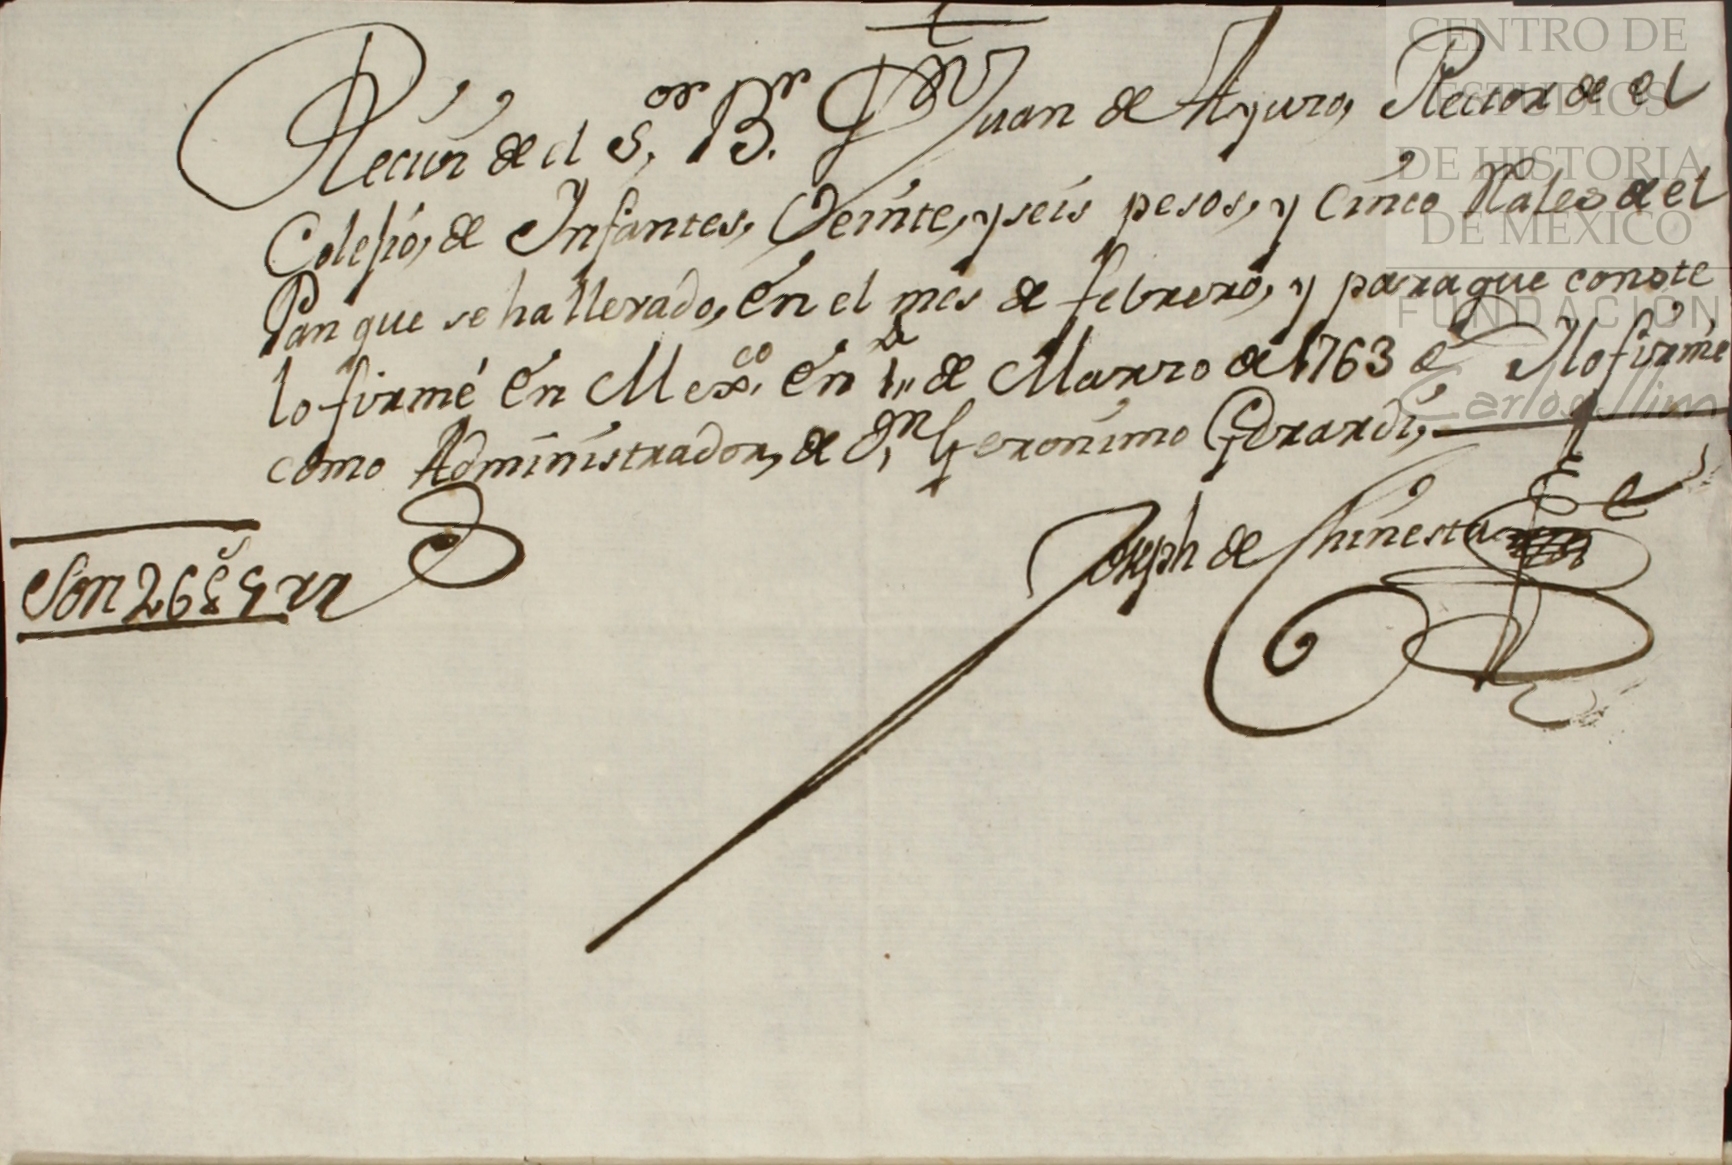 Reciví de el S.or B.r Dn Juan de Ayuro, Rector de el
Colegio, de Infantes, Veinte, y seis pesos, y Cinco Rales de el
Pan que se ha llevado, en el mes de febrero, y para que conste
lo firmé en Mex.co en 1º de Marzo de 1763 a
Y lo firmé
como Administrador, de Dn Geronimo Gerardi,
Joseph de Chinesta
Son 26 ps 5 rr
CENTRO DE
ESTUDIOS
DE HISTORIA
DE MÉXICO
FUNDACIÓN
Carlos Slim